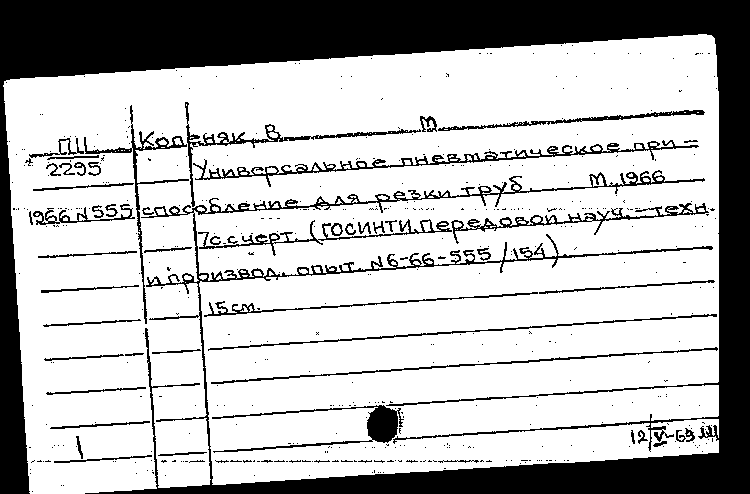 ПЦ Копеняк, В. М
2295 Универсальное пневматическое при-
1966 N 555 способление для резки труб. М., 1966
7с. с черт. (ГОСИНТИ. Передовой науч.-техн.
и производ. опыт. N 6-66-555/154).
15 см.
1
12/V-69